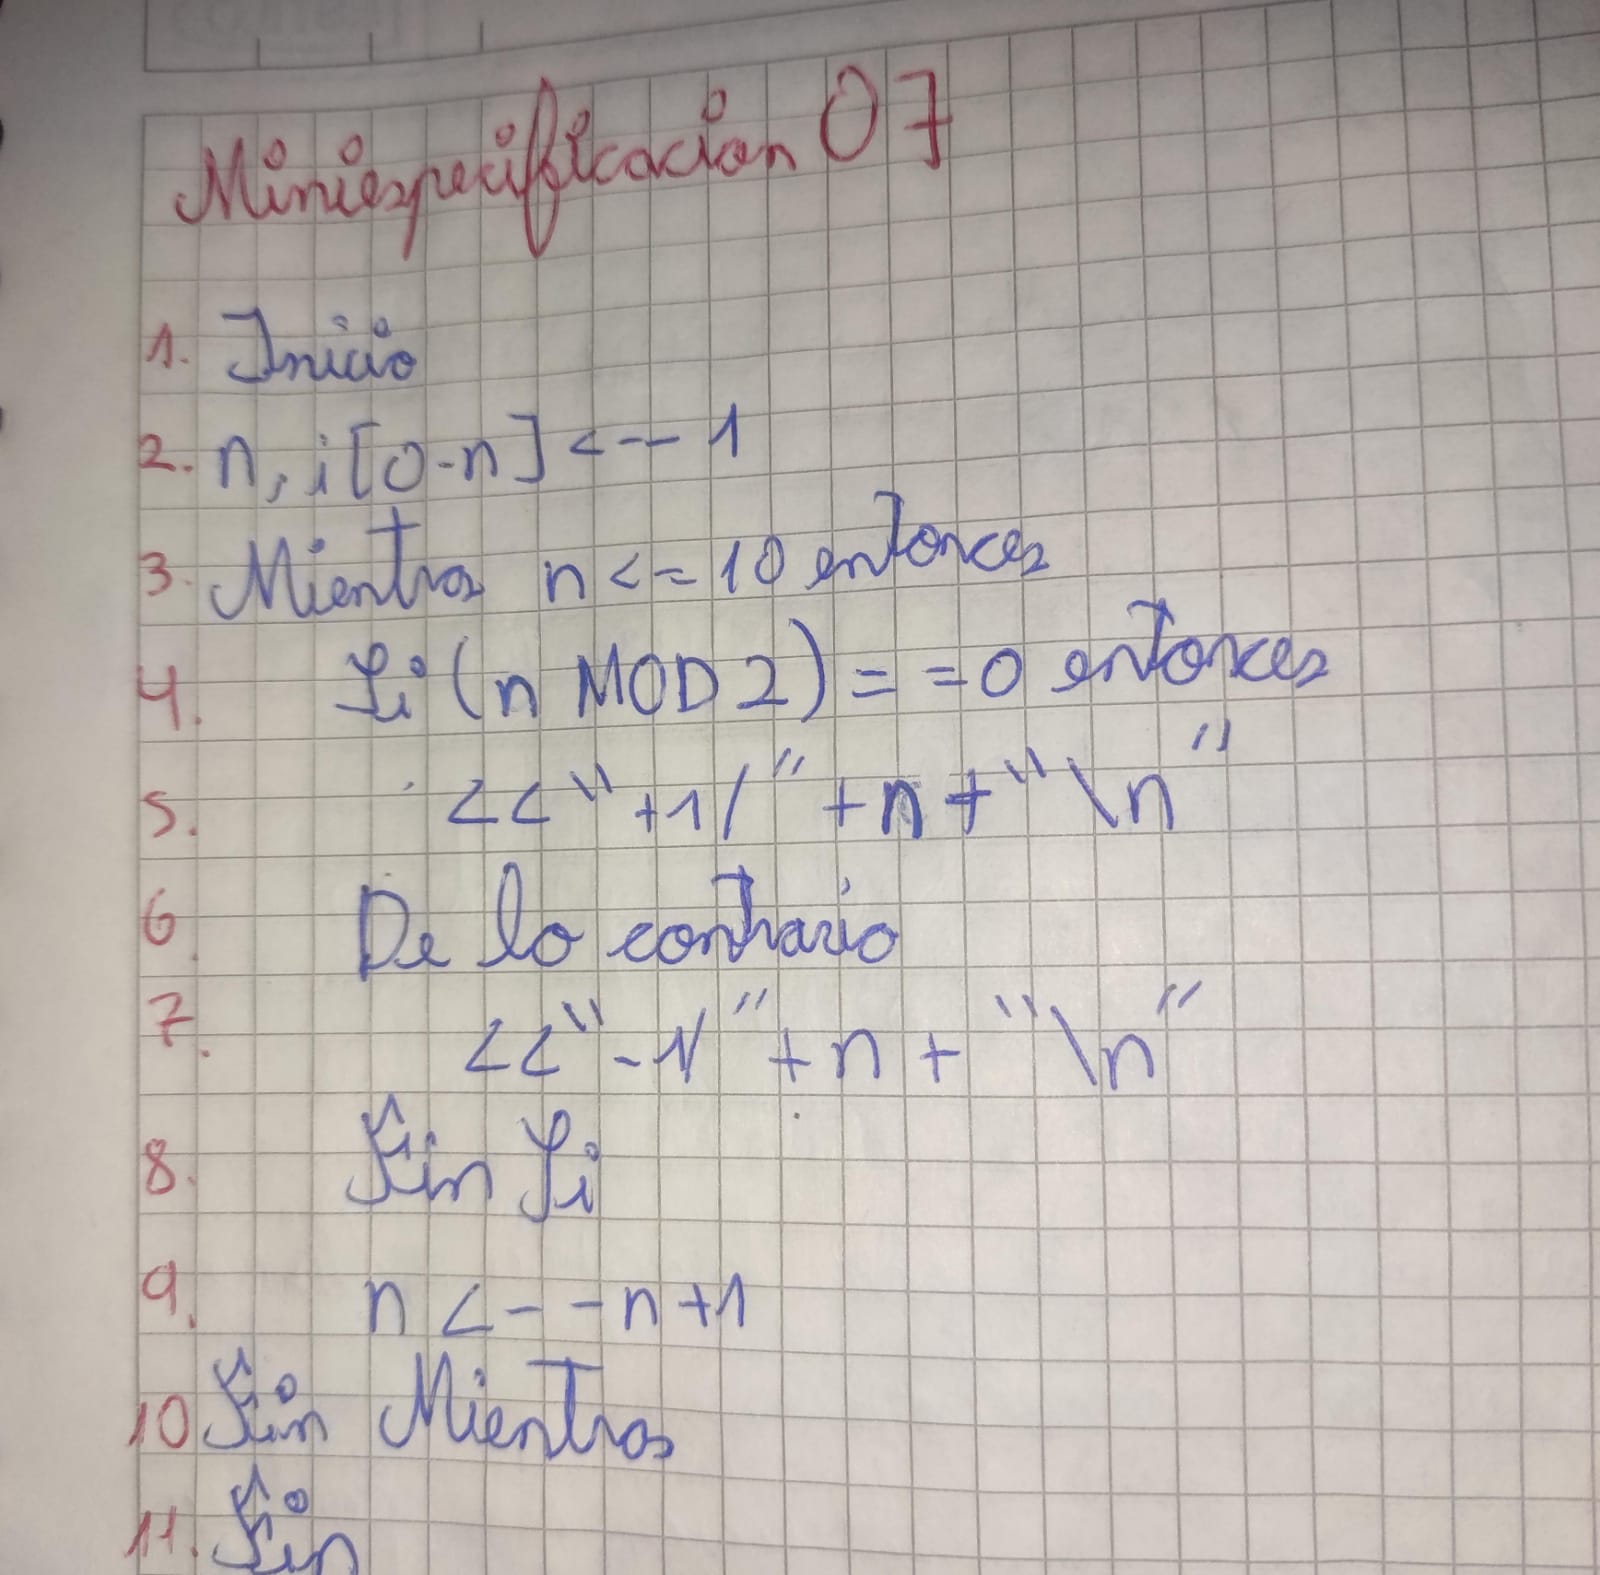 Miniespecificacion 07
1. Inicio
2. n, i[0-n] <-- 1
3. Mientras n <= 10 entonces
4. Si (n MOD 2) = = 0 entonces
5. << "+1/" + n + "\n"
6. De lo contrario
7. << "-1/" + n + "\n"
8. Fin Si
9. n <-- n +1
10 Fin Mientras
11. Fin